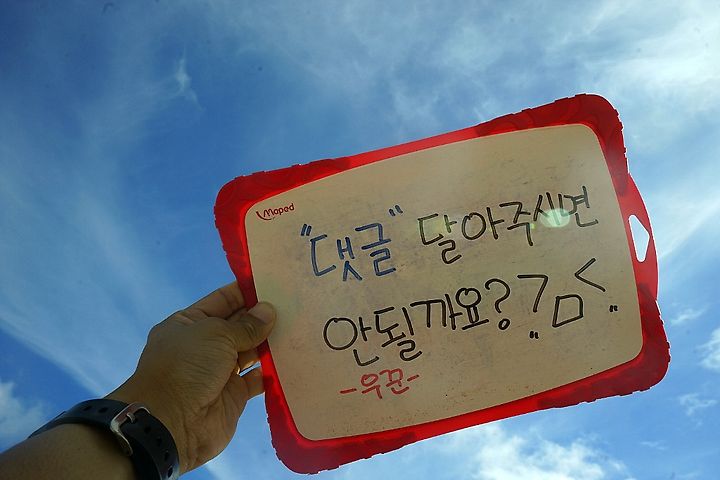 Maped
"댓글" 달아주시면
안될까요? ㅠㅁㅠ
-우꾼-